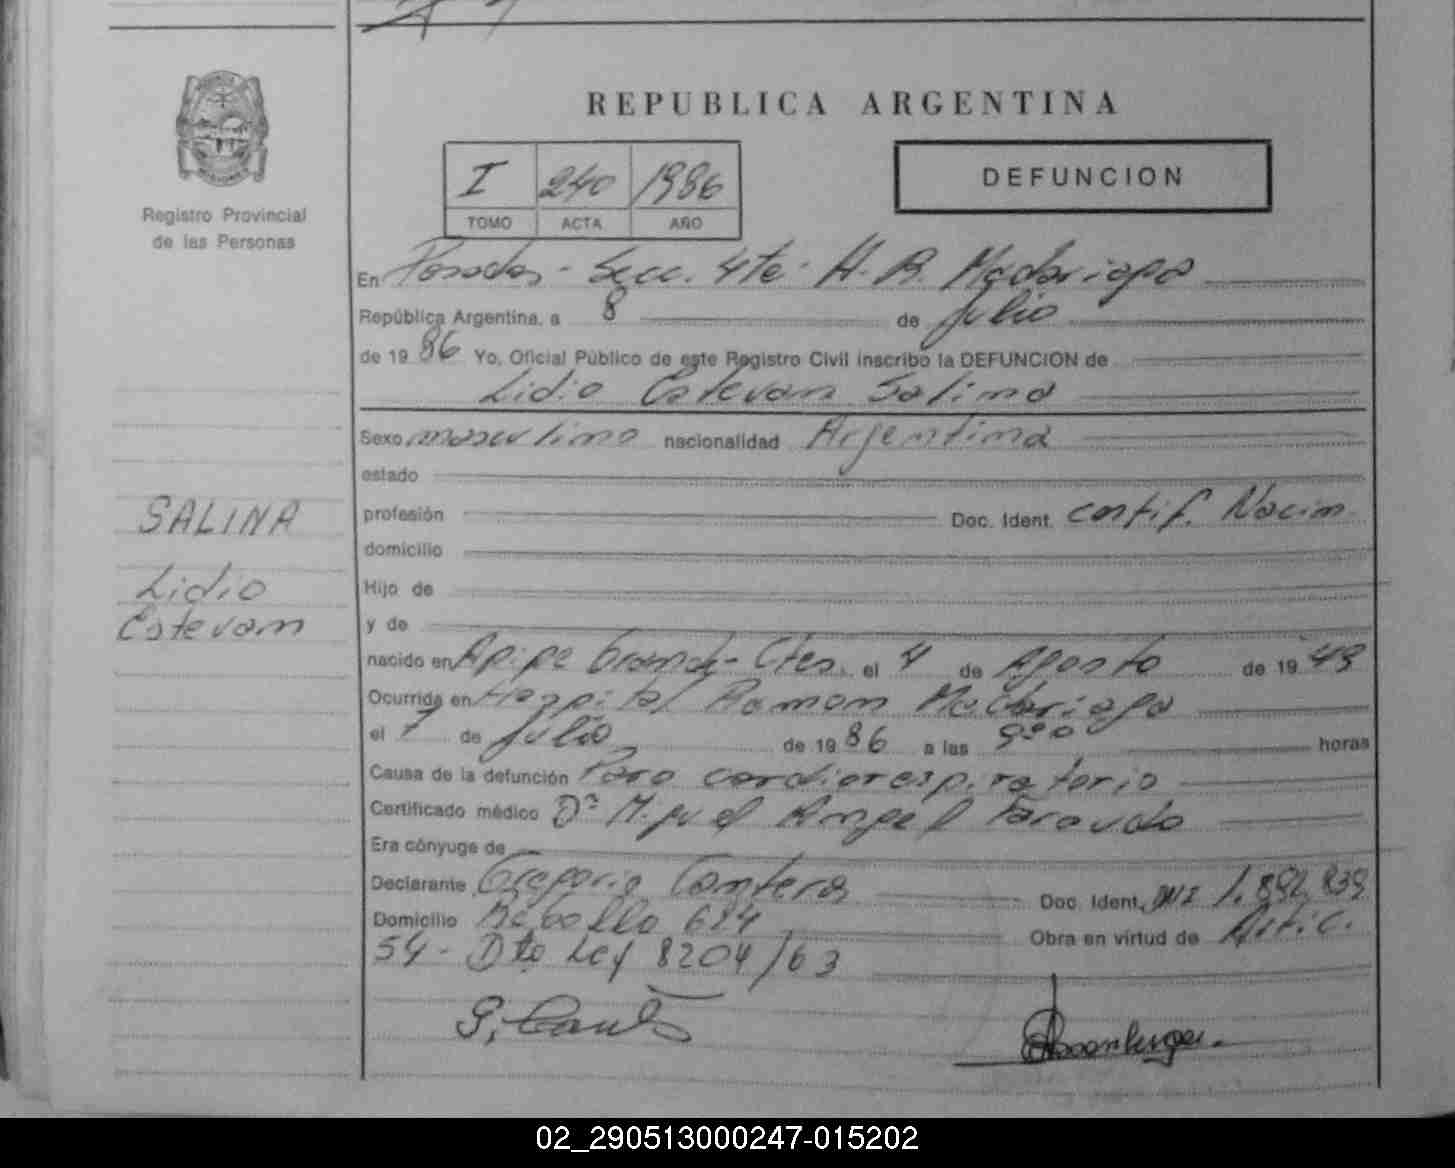 REPUBLICA ARGENTINA
I 240 1986
TOMO ACTA AÑO
DEFUNCION
Registro Provincial
de las Personas
En Posadas - Secc. 4ta. H. R. Madariaga
República Argentina, a 8 de Julio
de 19 86 Yo, Oficial Público de este Registro Civil inscribo la DEFUNCION de
Lidio Estevan Salina
Sexo masculino nacionalidad Argentina
estado
profesión Doc. Ident. certif. Nacim
domicilio
Hijo de
y de
SALINA
Lidio
Estevan
nacido en Apipe Grande - Ctes. el 4 de Agosto de 19 49
Ocurrida en Hospital Ramon Madariaga
el 7 de Julio de 19 86 a las horas
Causa de la defunción Paro cardiorespiratorio
Certificado médico Dr Miguel Angel
Era cónyuge de
Declarante Gregorio Cantero Doc. Ident. DNI
Domicilio Rebollo 624 Obra en virtud de Artic.
54 - Dto Ley 8204/63
02_290513000247-015202